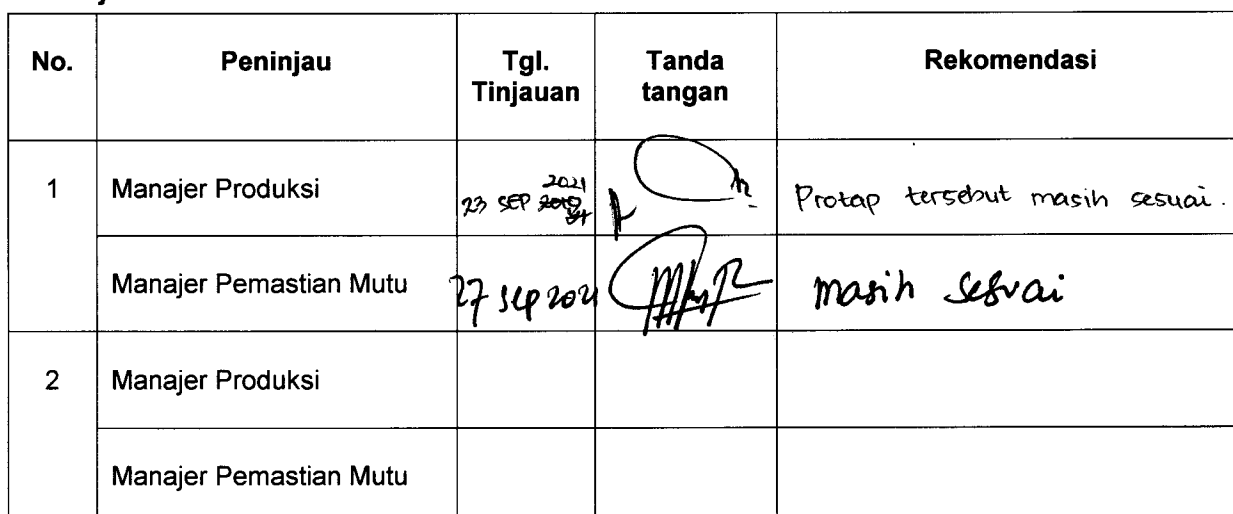 No. Peninjau Tgl. Tinjauan Tanda tangan Rekomendasi
1 Manajer Produksi 23 SEP 2021 Protap tersebut masih sesuai.
Manajer Pemastian Mutu 27 sep 2021 masih sesuai
2 Manajer Produksi
Manajer Pemastian Mutu